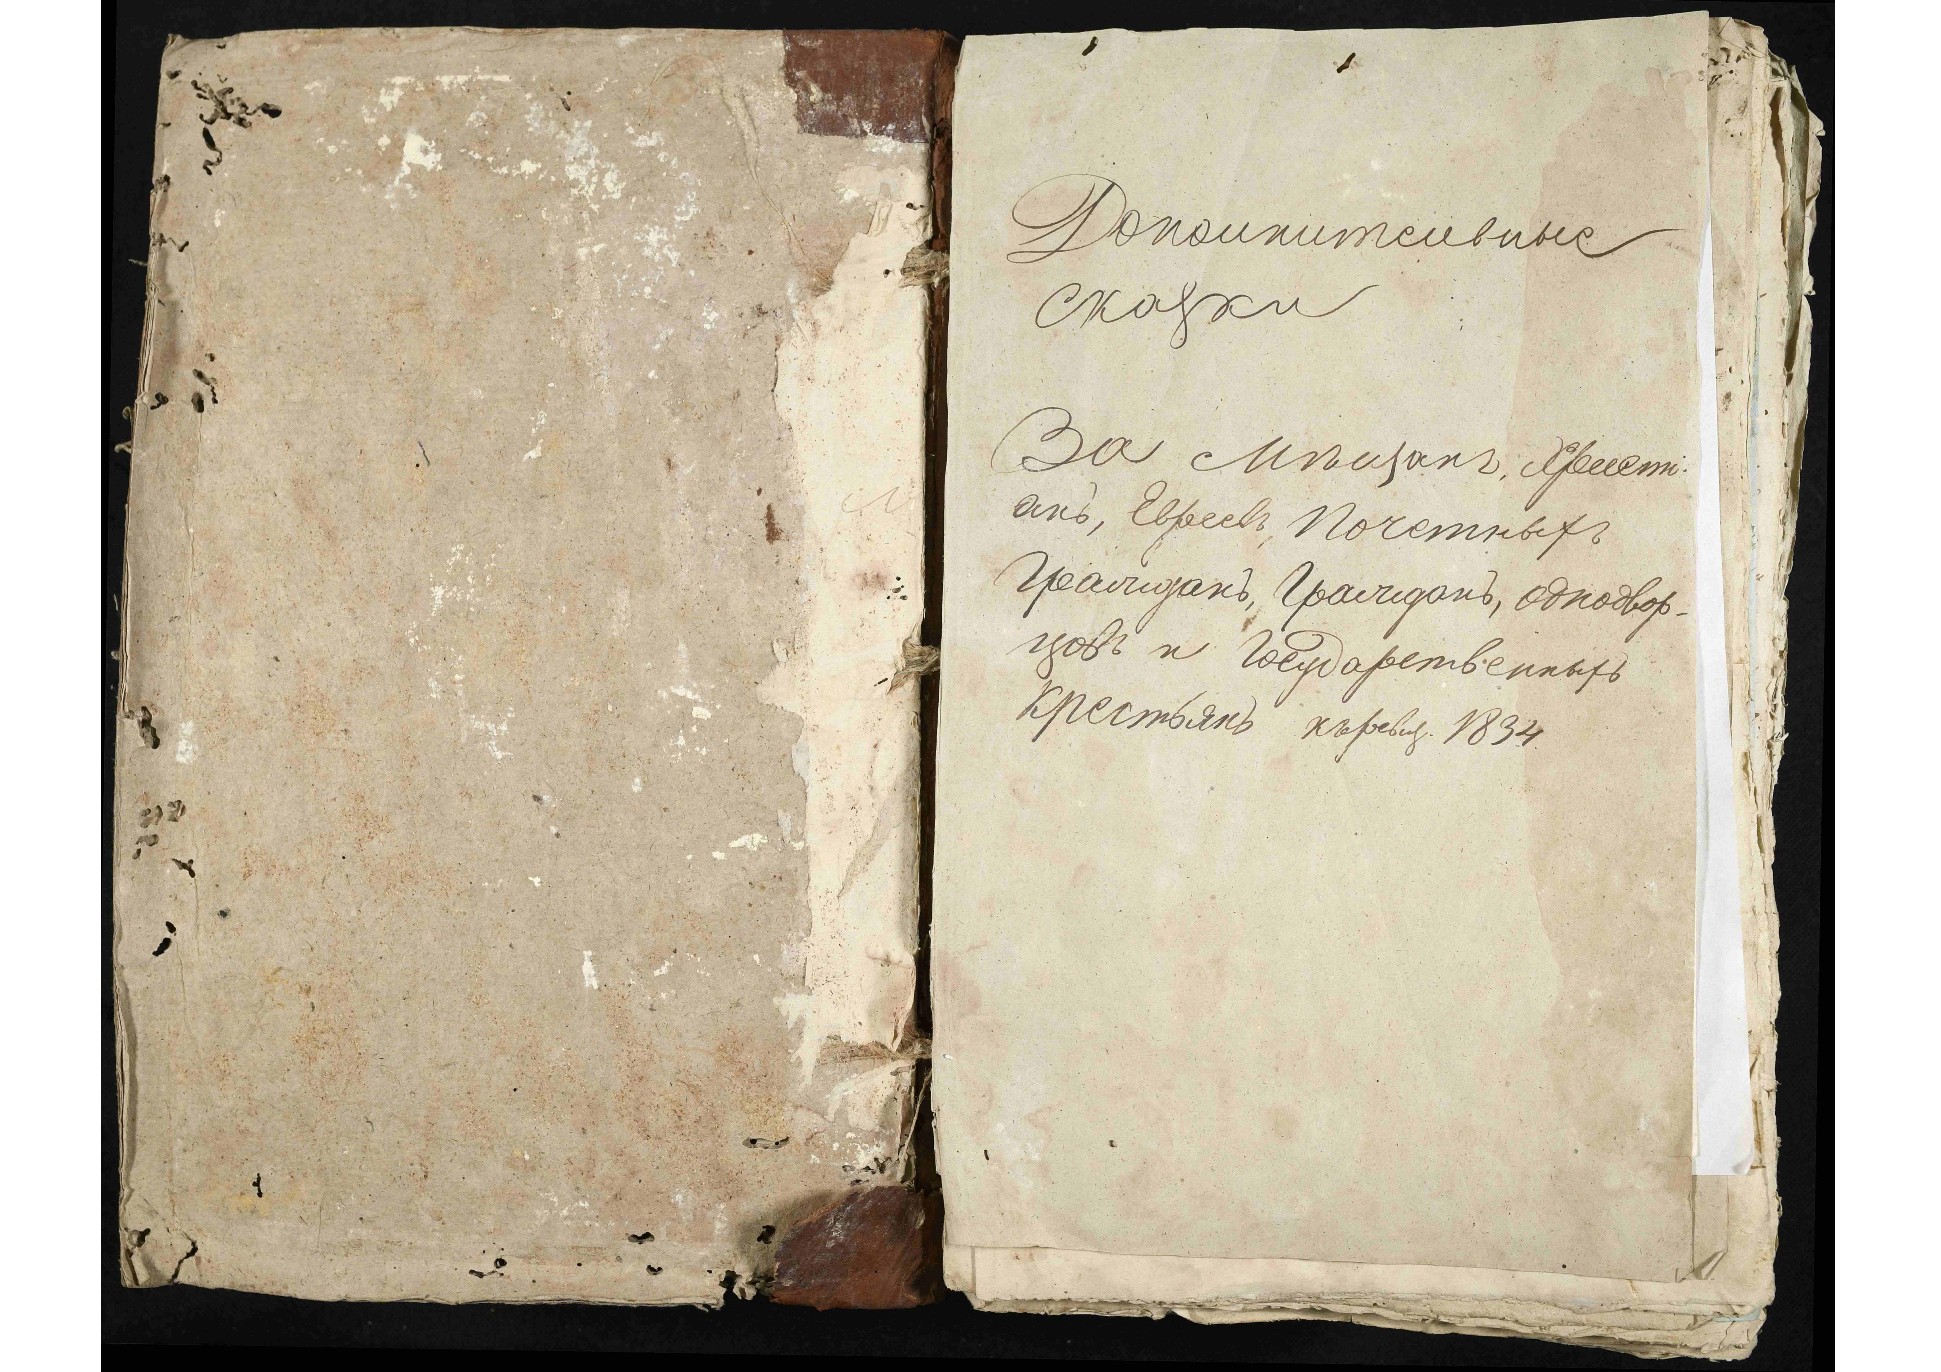 Дополнительные
сказки
За Мѣщанъ, Христi-
анъ, Евреевъ, Почетныхъ
Гражданъ, Гражданъ, однодвор-
цовъ и Государственныхъ
Крестьянъ къ ревиз. 1834